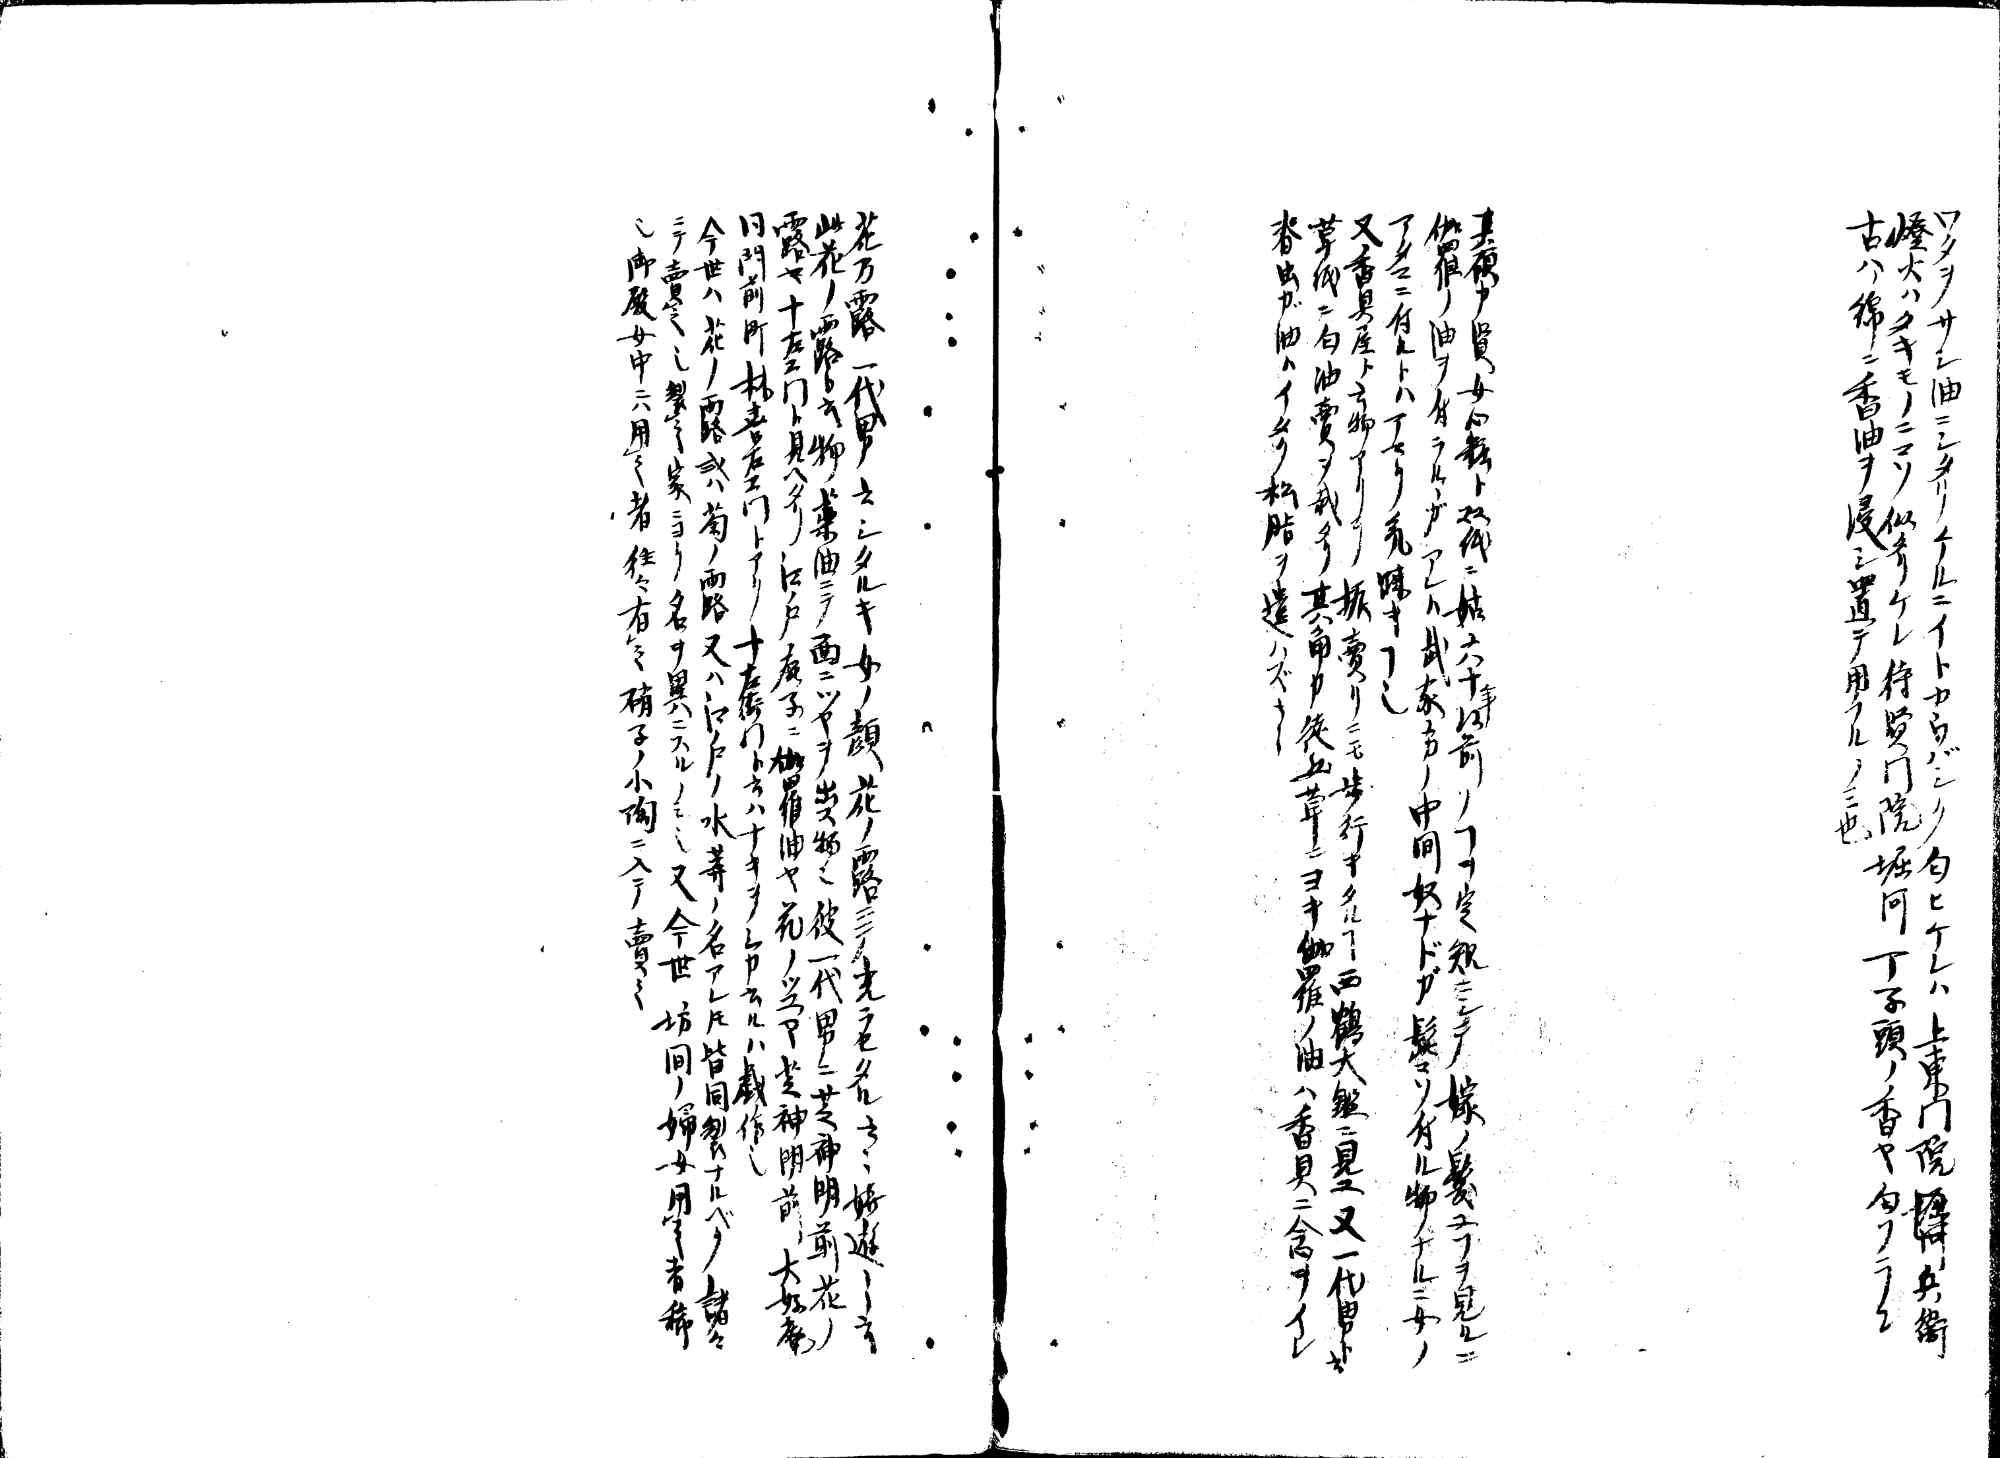 ワタヲサシ油ニシタリケルニイトカウバシク匂ヒケレハ 上東門院 兵衛
燈火ハタキモノニコソ似タリケレ 待賢門院 堀河 丁子頭ノ香ヤ匂フラン
古ハ綿ニ香油ヲ浸シ置テ用フルノミ也
其磧カ賢女心粧ト云双紙ニ姑六十年以前ノヿヲ定規ニシテ嫁ノ髪ユフヲ見ルニ
伽羅ノ油ヲ付ラルヽガアレハ武家方ノ中間奴ナドガ鬚コソ付ル物ナルニ女ノ
アタマニ付ルトハアセリ
又香具屋ト云物アリ 振賣リニモ歩行キタルヿ西鶴大鑑ニ見ユ 又一代男ナド云
草紙ニ匂油賣ヲ載タリ 其角カ徒五草ニヨキ伽羅ノ油ハ香具ニ念ヲイレ
油ハイタク松脂ヲ遣ハズ
花乃露 一代男ノ云シタルキ女ノ顔 花ノ露ニテ光ラセタル 嬉遊
此花ノ露ト云物ハ薬油ニテ面ニツヤヲ出ス物也 彼一代男ニ芝神明前花ノ
露ヤ十左エ門ト見ヘタリ 江戸鹿子ニ伽羅油ヤ花ノツユヤ芝神明前 大好庵
同門前町 林喜左エ門トアリ 十左衛門ト云ハナキヲシカ云ルハ戯作也
今世ハ花ノ露或ハ菊ノ露又ハ江戸ノ水等ノ名アレ𪜈皆同製ナルベク 諸々
ニテ賣 製 家ニヨリ名ヲ異ニスルノミ也 又今世 坊間ノ婦女用 者稀
也 御殿女中ニハ用 者往々有 硝子ノ小陶ニ入テ賣